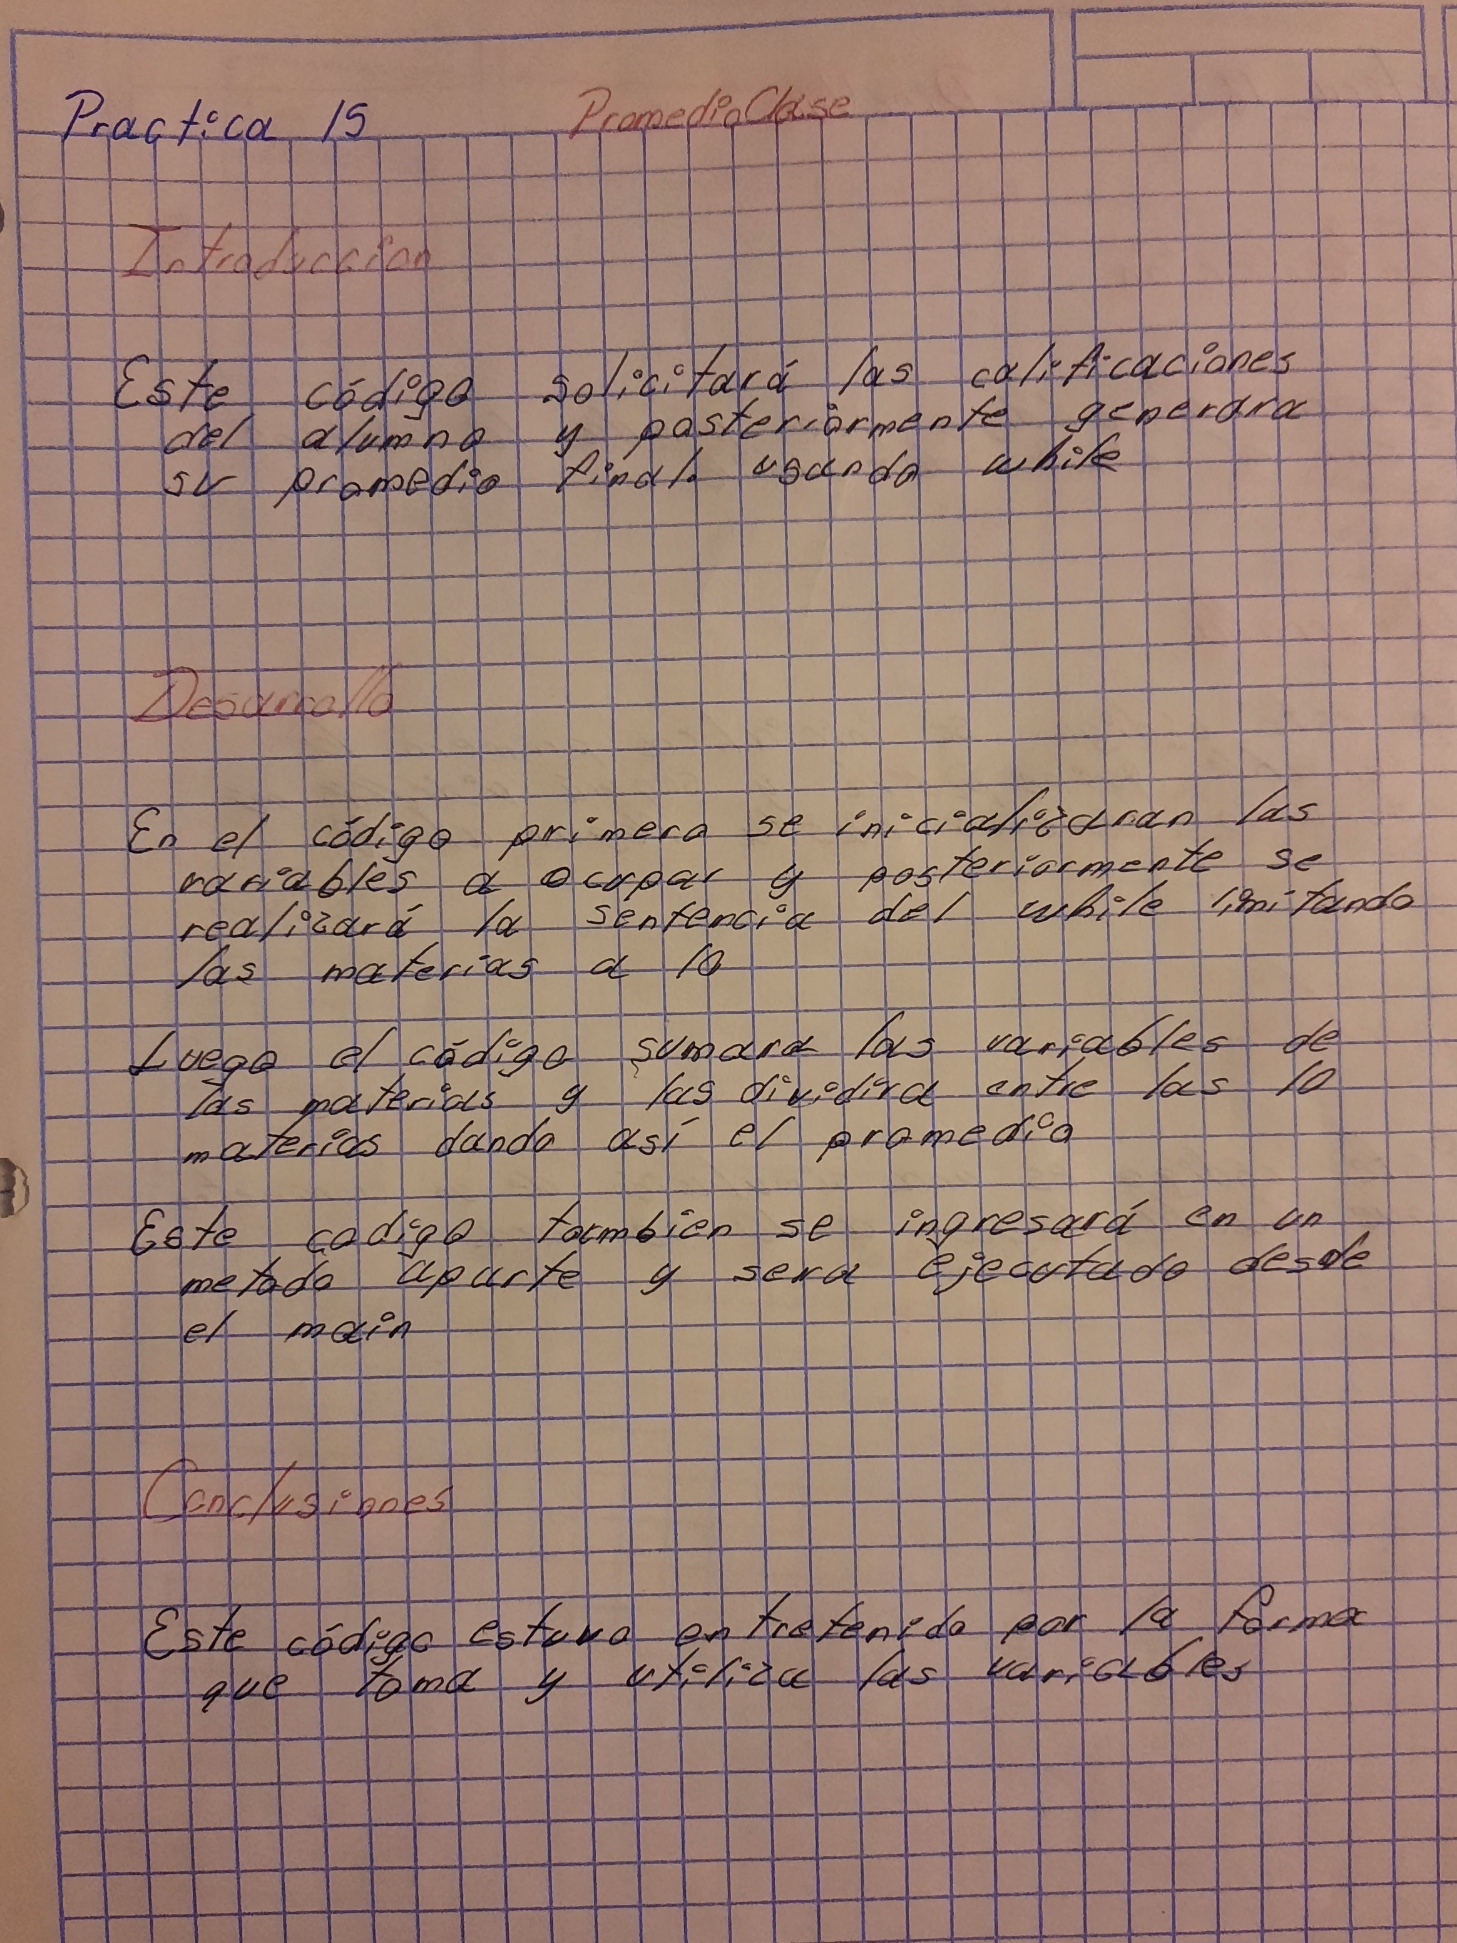 Practica 15 PromedioClase
Introduccion
Este código solicitará las calificaciones
del alumno y posteriormente generara
su promedio final. usando while
Desarrollo
En el código primero se inicializaran las
variables a ocupar y posteriormente se
realizará la sentencia del while limitando
las materias a 10
Luego el código sumara las variables de
las materias y las dividira entre las 10
materias dando así el promedio
Este codigo tambien se ingresará en un
metodo aparte y sera ejecutado desde
el main
Conclusiones
Este código estuvo entretenido por la forma
que toma y utiliza las variables